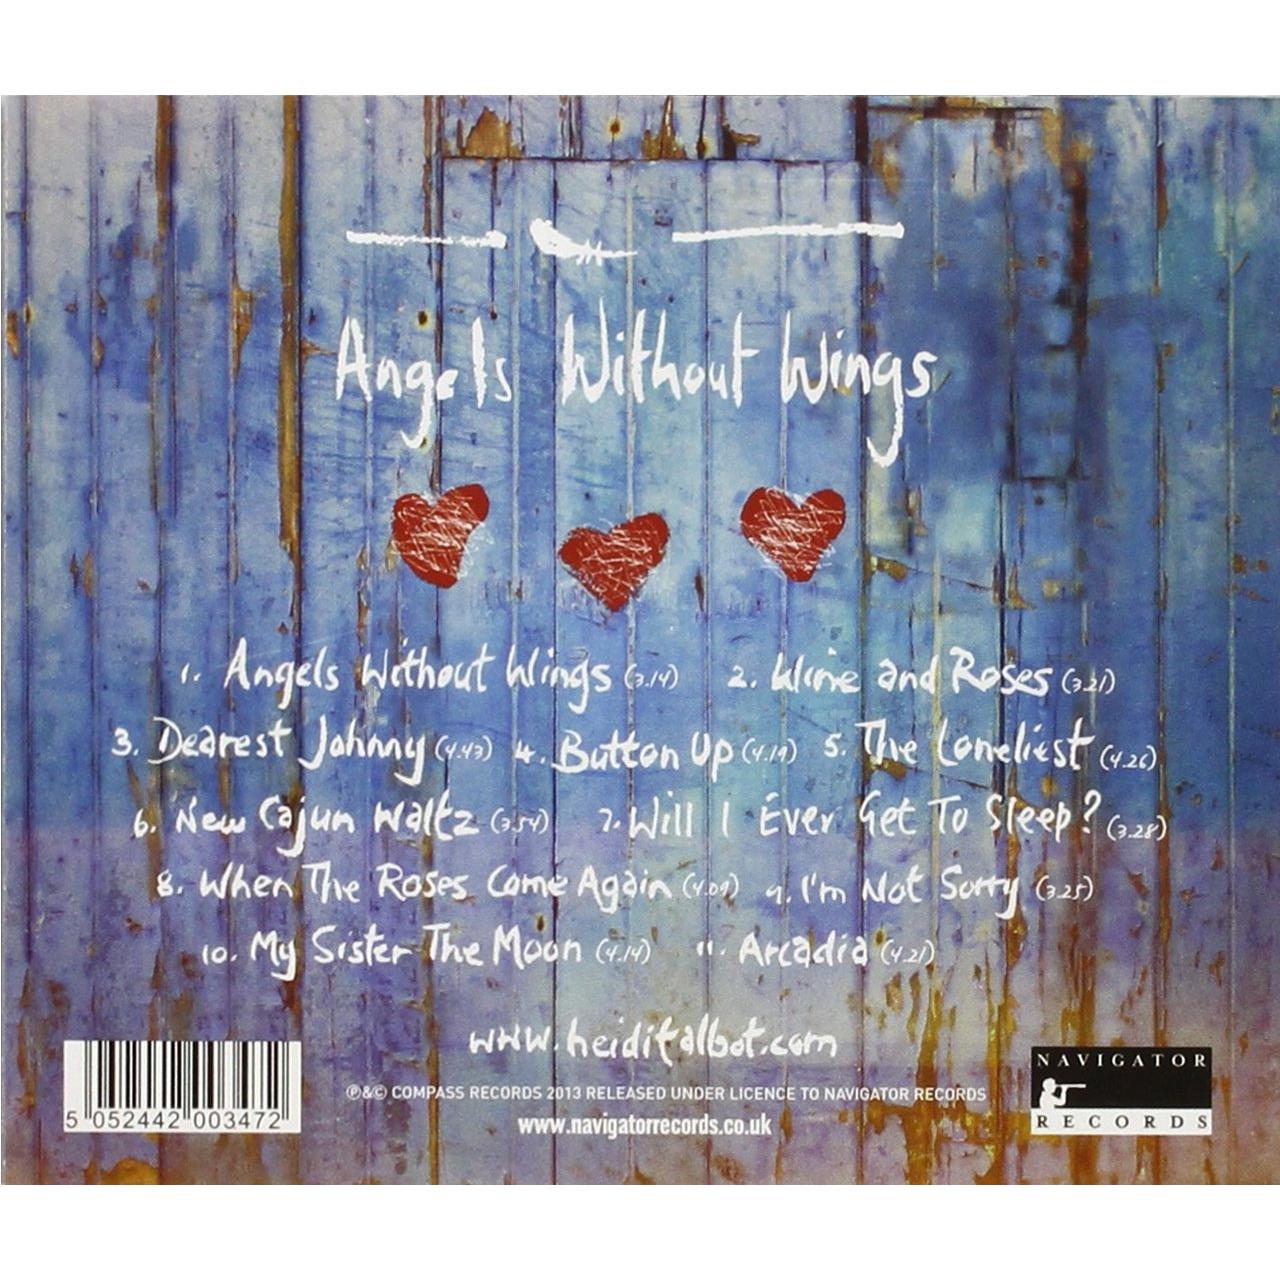 Angels Without Wings
1. Angels Without Wings (3.14) 2. Wine and Roses (3.21)
3. Dearest Johnny (4.43) 4. Button Up (4.19) 5. The Loneliest (4.26)
6. New Cajun Waltz (3.54) 7. Will I Ever Get To Sleep? (3.28)
8. When The Roses Come Again (4.09) 9. I'm Not Sorry (3.25)
10. My Sister The Moon (4.14) 11. Arcadia (4.21)
www.heiditalbot.com
℗&© COMPASS RECORDS 2013 RELEASED UNDER LICENCE TO NAVIGATOR RECORDS
www.navigatorrecords.co.uk
5 052442 003472
NAVIGATOR
RECORDS